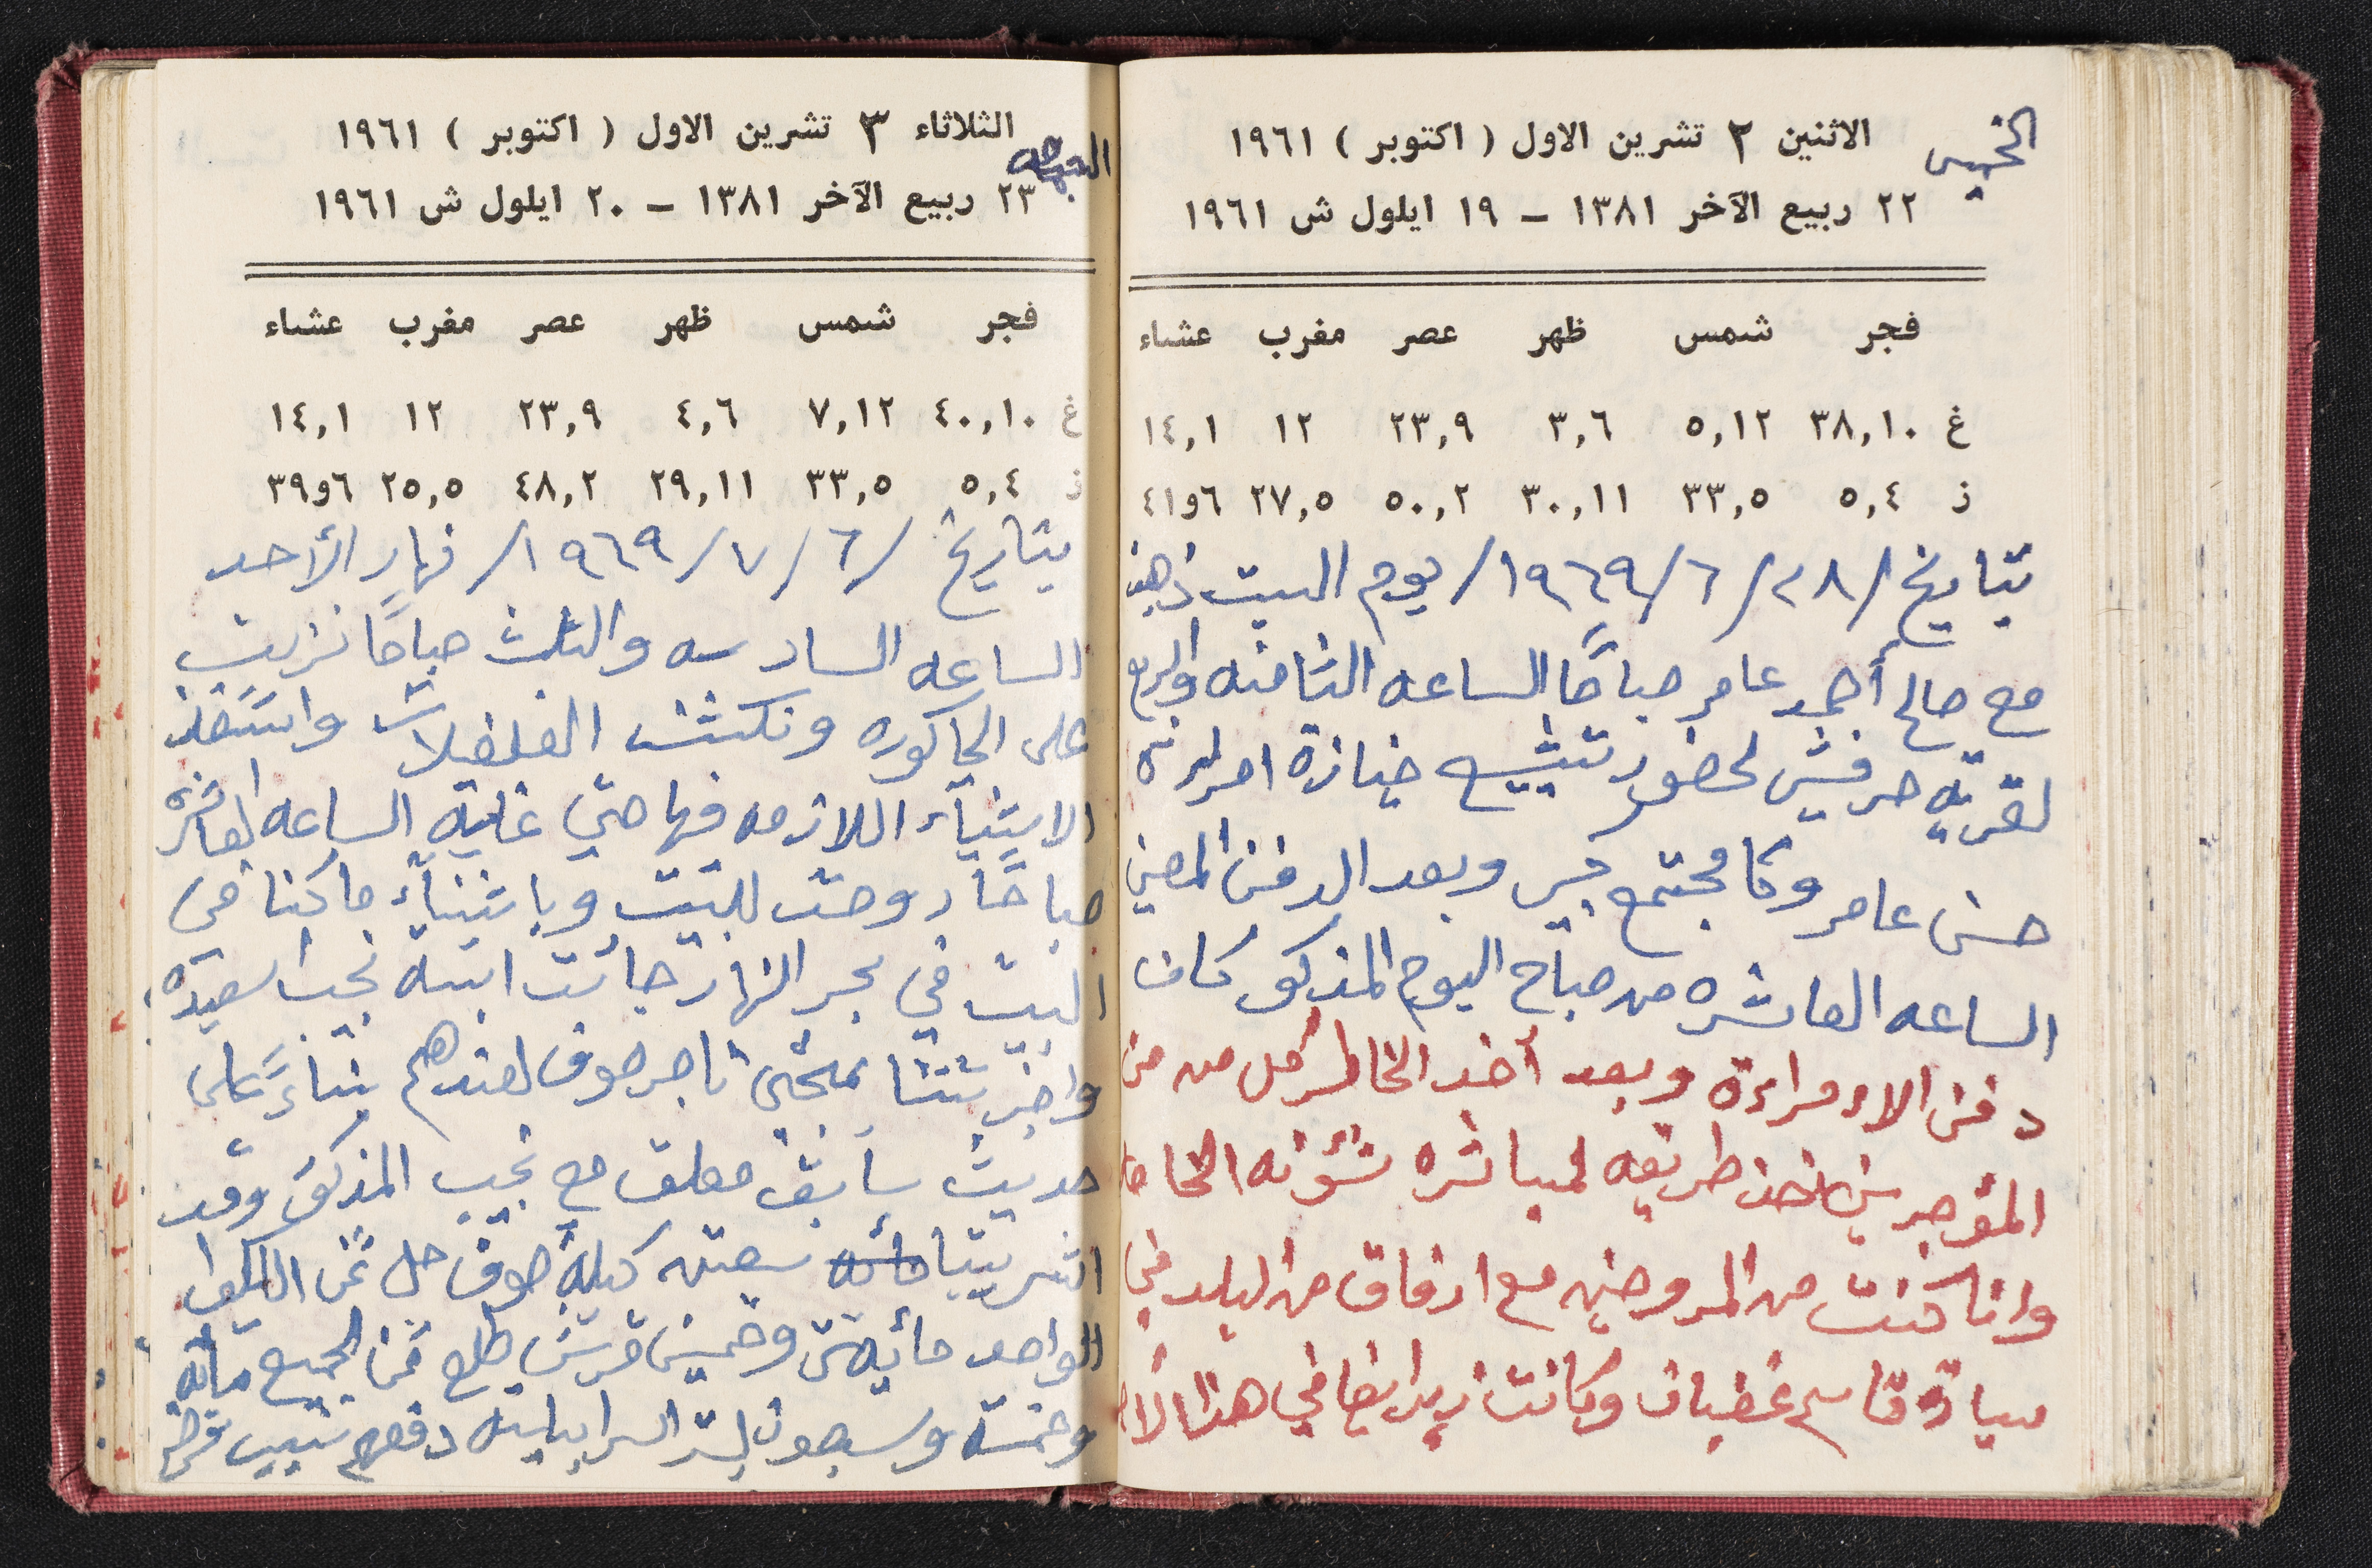 الخميس
الاثنين ٢ تشرين الاول ( اكتوبر ) ١٩٦١
٢٢ ربيع الآخر ١٣٨١ – ١٩ ايلول ش ١٩٦١
فجر شمس ظهر عصر مغرب عشاء
غ ٣٨,١٠ ٥,١٢ ٣,٦ ٢٣,٩ ١٢ ١٤,١
ز ٥,٤ ٣٣,٥ ٣٠,١١ ٥٠,٢ ٢٧,٥ ٦و٤١
بتاريخ /٢٨/٦/١٩٦٩/ يوم السبت ذهبنا
مع صالح أحمد عامر صباحًا الساعه الثامنه والربع
لقريه حرفيش لحضور تشييع جنازة امرأة
حسن عامر وكا مجتمع كبير وبعد الدفن
الساعه العاشره من صباح اليوم المذكور كان
دفن الامراءة وبعد أخد الخاطر كل من من
المؤجرين اخذ طريقه لمباشره شؤنه الخاصه
وانا كنت من المروحين مع ارفاق من البلد في
سيارة قاسم غضبان وكانت ايضا في هذا
الجمعه
الثلاثاء ٣ تشرين الاول ( اكتوبر ) ١٩٦١
٢٣ ربيع الآخر ١٣٨١ – ٢٠ ايلول ش ١٩٦١
فجر شمس ظهر عصر مغرب عشاء
غ ٤٠,١٠ ٧,١٢ ٤,٦ ٢٣,٩ ١٢ ١٤,١
ز ٥,٤ ٣٣,٥ ٢٩,١١ ٤٨,٢ ٢٥,٥ ٦و٣٩
بتاريخ /٦/٧/١٩٦٩/ نهار الأحد
الساعه السادسه والثلث صباحًا نزلت
على الحاكوره ونكشت الفلفلات واشتغلت
الاشيآء اللازمه فيها حتى غاية الساعه العاشره
صباحًا روحت للبيت وباثنيآء ماكنا في
البيت في بحر النهار جائت ابنة نجيب اسعيده
واخبرتنا بمجئ تاجر صوف لعندهم بناءً على
حديث سابق معلق مع نجيب المذكور وقد
اشرينا سعته كيلة صوف حل ثمن الكيلو
الواحد مائيتين وخمسين قرش طلع ثمن الجميع مأية
وخمسة وسبعون ليرة اسرايلية دفعهم